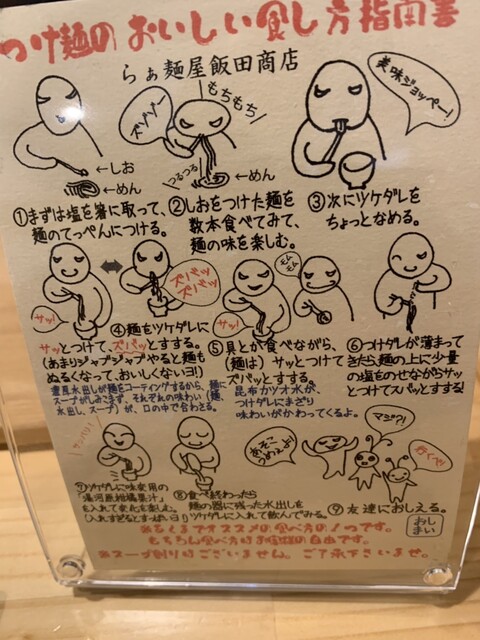 つけ麺のおいしい食し方指南書
らぁ麺屋飯田商店
ズゾゾゾー
もちもち
美味ジョッペー!
←しお
←めん
つるつる
←めん
①まずは塩を箸に取って、
麺のてっぺんにつける。
②しおをつけた麺を
数本食べてみて、
麺の味を楽しむ。
③次にツケダレを
ちょっとなめる。
サッ!
ズバッ
ズバッ
サッ!
モム
モム
④麺をツケダレに
サッとつけて、ズバッとすする。
(あまりジャブジャブやると麺も
ぬるくなって、おいしくないヨ!)
濃度水出しが麺をコーティングするから、麺に
スープがしみこまず、それぞれの味わい(麺、
水出し、スープ)が、口の中で合わさる。
⑤具とか食べながら、
(麺は)サッとつけて
ズバッとすする。
昆布カツオ水が、
つけダレにまざり
味わいがかわってくるよ。
⑥つけダレが薄まって
きたら麺の上に少量
の塩をのせながらサッ
とつけてスパッとすする!
マジ?!
行くべ!
⑦ツケダレに味変用の
「湯河原柑橘果汁」
を入れて変化を楽む。
(入れすぎるとすっぱいヨ!)
⑧食べ終わったら
麺の器に残った水出しを
ツケダレに入れて飲んでみる。
⑨友達におしえる。
おし
まい
※あくまでオススメの食べ方の1つです。
もちろん食べ方はお客様の自由です。
※スープ割りはございません。ご了承下さいませ。